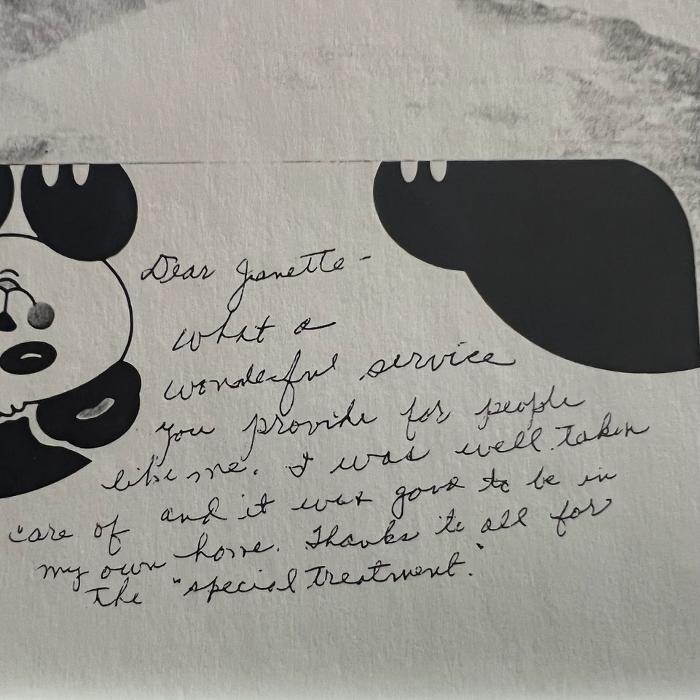 Dear Jeanette -
What a
wonderful service
you provide for people
like me. I was well taken
care of and it was good to be in
my own home. Thanks to all for
the "special treatment."